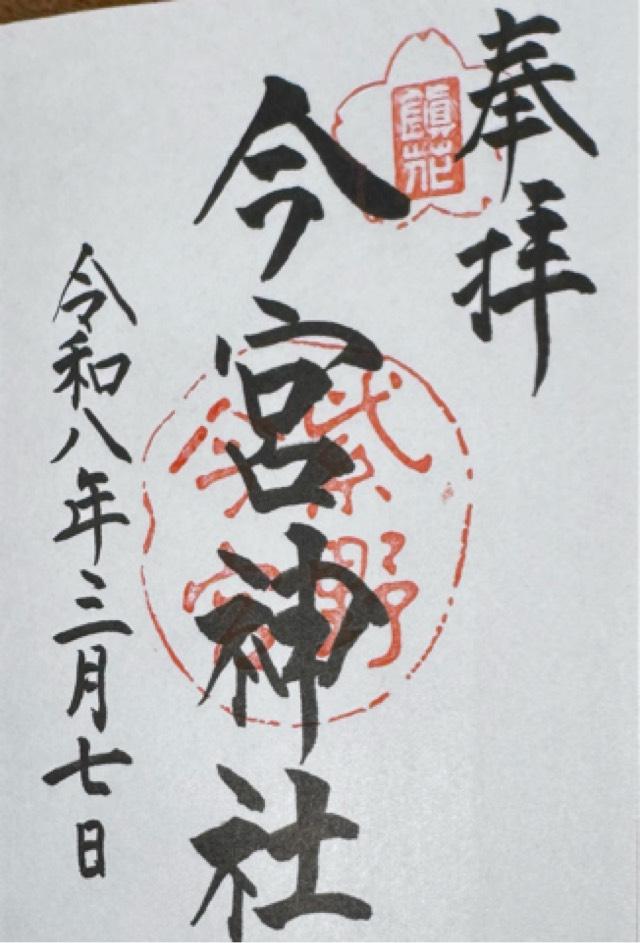 奉拝
鎮花
今宮神社
紫野
今宮
令和八年三月七日